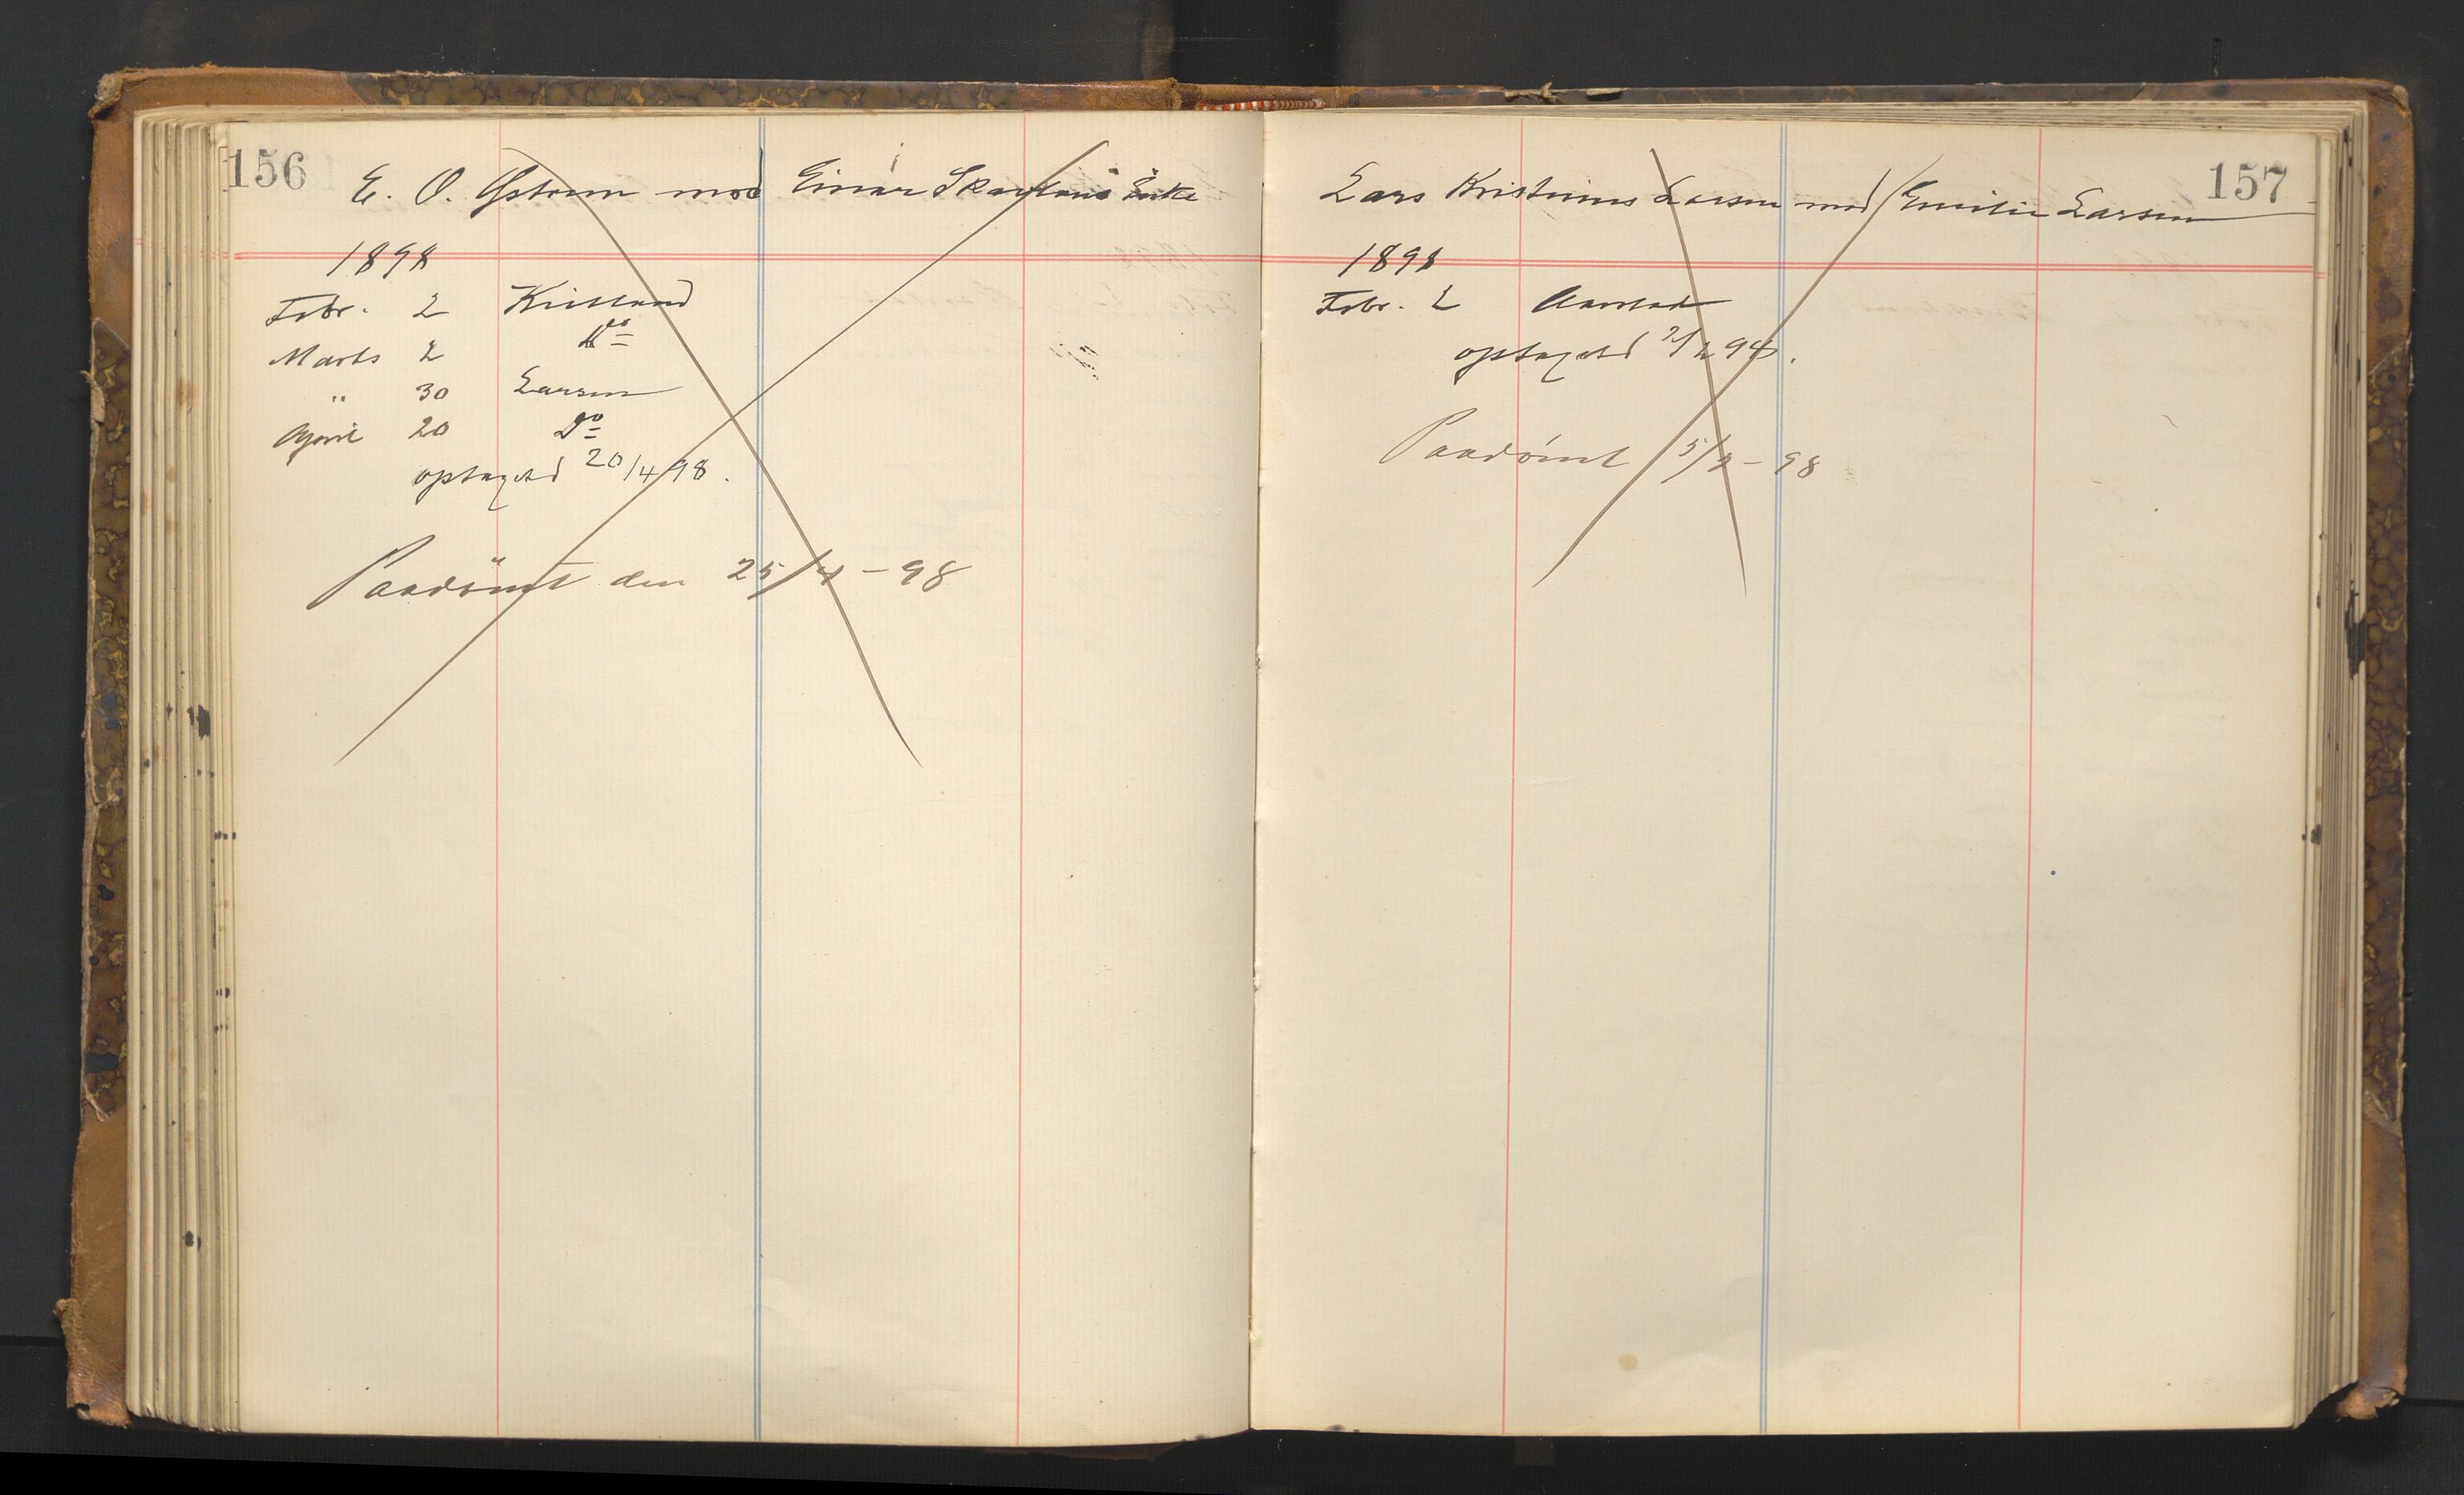 156
E. O. Østrem mod Einar Skavlans Enke
1898
Febr. 2 Krisland
Marts 2 Do
" 30 Larsen
April 20 Do
optaget 20/4 98.
Paadømt den 25/4 - 98
157
Lars Kristinus Larsen mod Emilie Larsen
1898
Febr. 2 Aarstad
optaget 2/2 98.
Paadømt 5/2 - 98